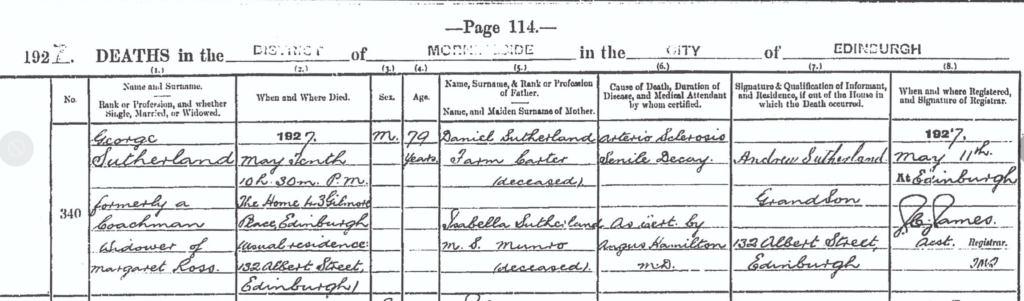 —Page 114.—
1927. DEATHS in the DISTRICT of MORNINGSIDE in the CITY of EDINBURGH
(1.) (2.) (3.) (4.) (5.) (6.) (7.) (8.)
No.
Name and Surname.
Rank or Profession, and whether
Single, Married, or Widowed.
When and Where Died.
Sex.
Age.
Name, Surname, & Rank or Profession
of Father.
Name, and Maiden Surname of Mother.
Cause of Death, Duration of
Disease, and Medical Attendant
by whom certified.
Signature & Qualification of Informant,
and Residence, if out of the House in
which the Death occurred.
When and where Registered,
and Signature of Registrar.
340
George
Sutherland
formerly a
Coachman
Widower of
Margaret Ross.
1927.
May Tenth
10h. 30m. P.M.
The Home 43 Gilmore
Place, Edinburgh
(usual residence:
132 Albert Street,
Edinburgh)
M.
79
years
Daniel Sutherland
Farm Carter
(deceased).
Isabella Sutherland
M.S. Munro
(deceased).
Arterio Sclerosis
Senile Decay.
As cert. by
Angus Hamilton
M.D.
Andrew Sutherland
Grandson
132 Albert Street,
Edinburgh
1927.
May 11th.
At Edinburgh
James.
Asst. Registrar.